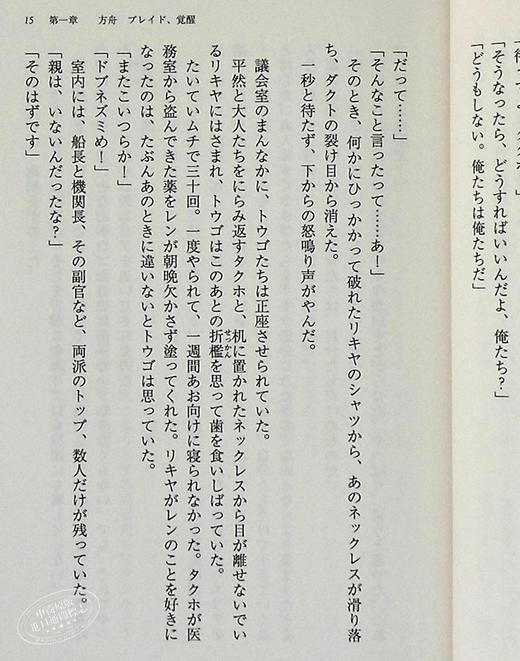 「そうなったら、どうすればいいんだよ、俺たち?」
「どうもしない。俺たちは俺たちだ」
15　第一章　方舟　ブレイド、覚醒
「だって……」
「そんなこと言ったって……あ!」
そのとき、何かにひっかかって破れたリキヤのシャツから、あのネックレスが滑り落
ち、ダクトの裂け目から消えた。
一秒と待たず、下からの怒鳴り声がやんだ。
議会室のまんなかに、トウゴたちは正座させられていた。
平然と大人たちをにらみ返すタクホと、机に置かれたネックレスから目が離せないでい
るリキヤにはさまれ、トウゴはこのあとの折檻を思って歯を食いしばっていた。
せっかん
たいていムチで三十回。一度やられて、一週間あお向けに寝られなかった。タクホが医
務室から盗んできた薬をレンが朝晩欠かさず塗ってくれた。リキヤがレンのことを好きに
なったのは、たぶんあのときに違いないとトウゴは思っていた。
「またこいつらか!」
「ドブネズミめ!」
室内には、船長と機関長、その副官など、両派のトップ、数人だけが残っていた。
「親は、いないんだったな?」
「そのはずです」
中商原版